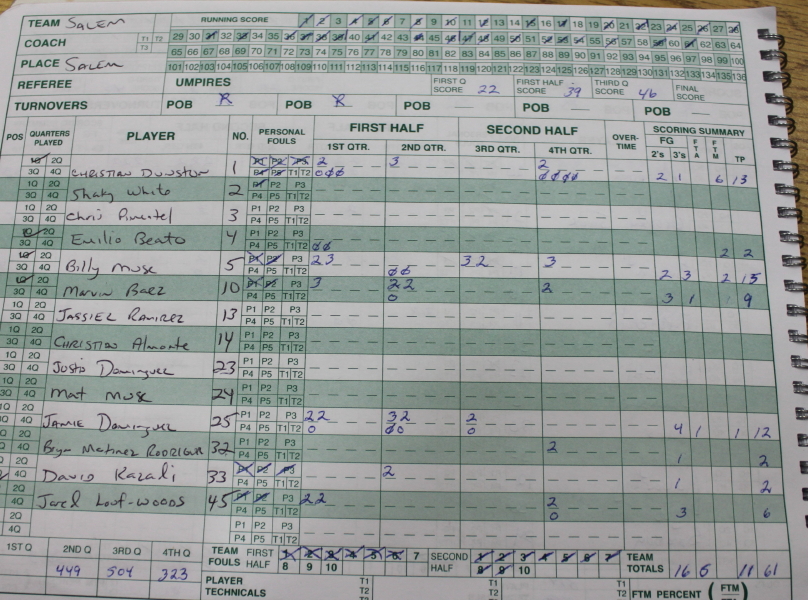 TEAM SALEM RUNNING SCORE 1 2 3 4 5 6 7 8 9 10 11 12 13 14 15 16 17 18 19 20 21 22 23 24 25 26 27 28
COACH T1 T2 T3 29 30 31 32 33 34 35 36 37 38 39 40 41 42 43 44 45 46 47 48 49 50 51 52 53 54 55 56 57 58 59 60 61 62 63 64
65 66 67 68 69 70 71 72 73 74 75 76 77 78 79 80 81 82 83 84 85 86 87 88 89 90 91 92 93 94 95 96 97 98 99 100
PLACE SALEM 101 102 103 104 105 106 107 108 109 110 111 112 113 114 115 116 117 118 119 120 121 122 123 124 125 126 127 128 129 130 131 132 133 134 135 136
REFEREE UMPIRES FIRST Q SCORE 22 FIRST HALF SCORE 39 THIRD Q SCORE 46 FINAL SCORE
TURNOVERS POB R POB R POB POB POB
POS QUARTERS PLAYED PLAYER NO. PERSONAL FOULS FIRST HALF SECOND HALF OVER-TIME SCORING SUMMARY
1ST QTR. 2ND QTR. 3RD QTR. 4TH QTR. FG 2's 3's FTA FTM TP
1Q 2Q 3Q 4Q CHRISTIAN DUNSTON 1 P1 P2 P3 P4 P5 T1 T2 2 3 2 2 1 6 13
1Q 2Q 3Q 4Q Shaky White 2 P1 P2 P3 P4 P5 T1 T2
1Q 2Q 3Q 4Q Chris Pimentel 3 P1 P2 P3 P4 P5 T1 T2
1Q 2Q 3Q 4Q Emilio Beato 4 P1 P2 P3 P4 P5 T1 T2 2 2
1Q 2Q 3Q 4Q Billy Muse 5 P1 P2 P3 P4 P5 T1 T2 2 3 3 2 3 2 3 2 15
1Q 2Q 3Q 4Q Marvin Baez 10 P1 P2 P3 P4 P5 T1 T2 3 2 2 0 2 3 1 9
1Q 2Q 3Q 4Q JASSIEL RAMIREZ 13 P1 P2 P3 P4 P5 T1 T2
1Q 2Q 3Q 4Q CHRISTIAN Almonte 14 P1 P2 P3 P4 P5 T1 T2
1Q 2Q 3Q 4Q Justo Dominguez 23 P1 P2 P3 P4 P5 T1 T2
1Q 2Q 3Q 4Q Mat Muse 24 P1 P2 P3 P4 P5 T1 T2
1Q 2Q 3Q 4Q JAMIE Dominguez 25 P1 P2 P3 P4 P5 T1 T2 2 2 0 3 2 2 0 4 1 1 12
2Q 4Q Martinez Rodriguez 32 P1 P2 P3 P4 P5 T1 T2 2 1 2
2Q 4Q David Kazadi 33 P1 P2 P3 P4 P5 T1 T2 2 1 2
2Q 4Q Jared Lout-Woods 45 P1 P2 P3 P4 P5 T1 T2 2 2 2 0 3 6
2Q 4Q P1 P2 P3 P4 P5 T1 T2
1ST Q 2ND Q 3RD Q 4TH Q TEAM FOULS FIRST HALF 1 2 3 4 5 6 7 8 9 10 SECOND HALF 1 2 3 4 5 6 7 8 9 10 TEAM TOTALS 16 5 11 61
449 504 323 PLAYER TECHNICALS T1 T2 T1 T2 T1 T2 FTM PERCENT ( FTM